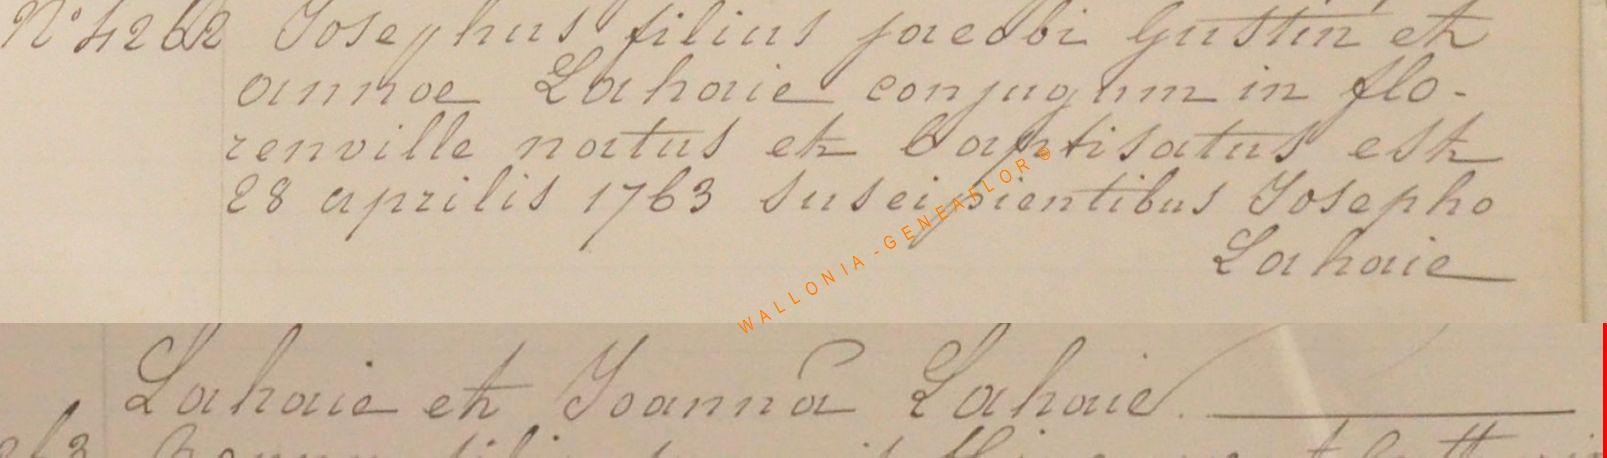 N° 4262 Josephus filius jacobi Gustin et
annae Lahaie conjugum in flo-
renville natus et baptisatus est
28 aprilis 1763 suscipientibus Josepho
Lahaie
WALLONIA-GENEAFLOR®
Lahaie et Joanna Lahaie.